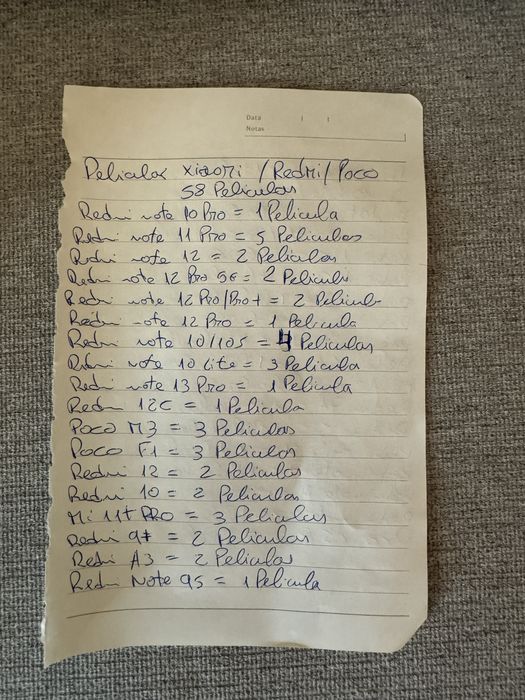 Data / /
Notas
Peliculas xiaomi /Redmi/Poco
58 Peliculas
Redmi note 10 Pro = 1 Pelicula
Redmi note 11 Pro = 5 Peliculas
Redmi note 12 = 2 Peliculas
Redmi note 12 Pro 5G = 2 Peliculas
Redmi note 12 Pro/Pro+ = 2 Peliculas
Redmi note 12 Pro = 1 Pelicula
Redmi note 10/10S = 4 Peliculas
Redmi note 10 Lite = 3 Pelicula
Redmi note 13 Pro = 1 Pelicula
Redmi 12C = 1 Pelicula
Poco M3 = 3 Peliculas
Poco F1 = 3 Peliculas
Redmi 12 = 2 Peliculas
Redmi 10 = 2 Peliculas
Mi 11t PRO = 3 Peliculas
Redmi 9t = 2 Peliculas
Redmi A3 = 2 Peliculas
Redmi Note 9S = 1 Pelicula